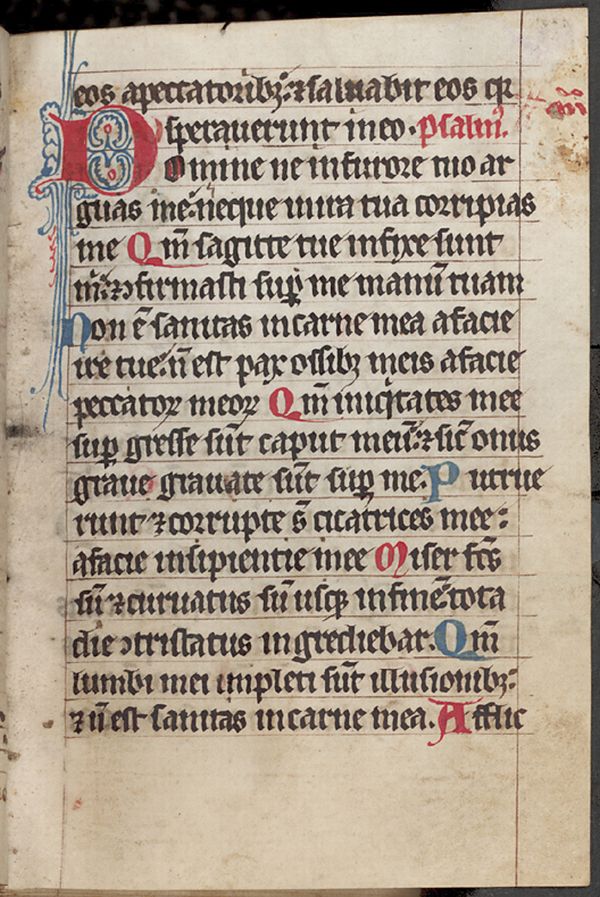 eos apeccatoribꝫ: ⁊ saluabit eos qr̄
speraueruut in eo. Psalmꝰ.
Domine ne in furore tuo ar
guas me: neque in ira tua corripias
me Qm̄ sagitte tue infixe sunt
m̄: ⁊ ↄfirmasti suꝑ me manū tuam
Non ē sanitas in carne mea afacie
ire tue: n̄ est pax ossibꝫ meis afacie
peccatoꝝ meoꝝ Qm̄ iniq̄tates mee
suꝑ gresse sūt caput meū: ⁊ sic̄ onus
graue grauate sūt suꝑ me. Putrue
runt ⁊ corrupte s̄ cicatrices mee:
afacie insipientie mee Miser fc̄s
sū ⁊ curuatus sū usqꝫ in finē: tota
die ↄtristatus ingrediebar. Qm̄
lumbi mei impleti sūt illusionibꝫ:
⁊ n̄ est sanitas in carne mea. Afflic